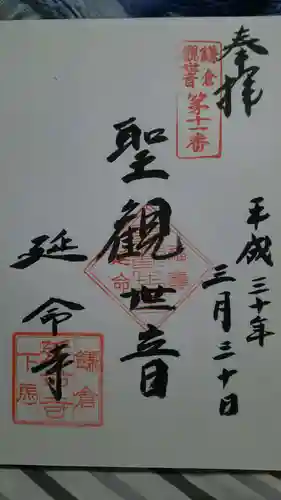 奉拝
鎌倉
観世音
第十一番
平成三十年
三月三十日
聖観世音
延命寺
鎌倉
下馬